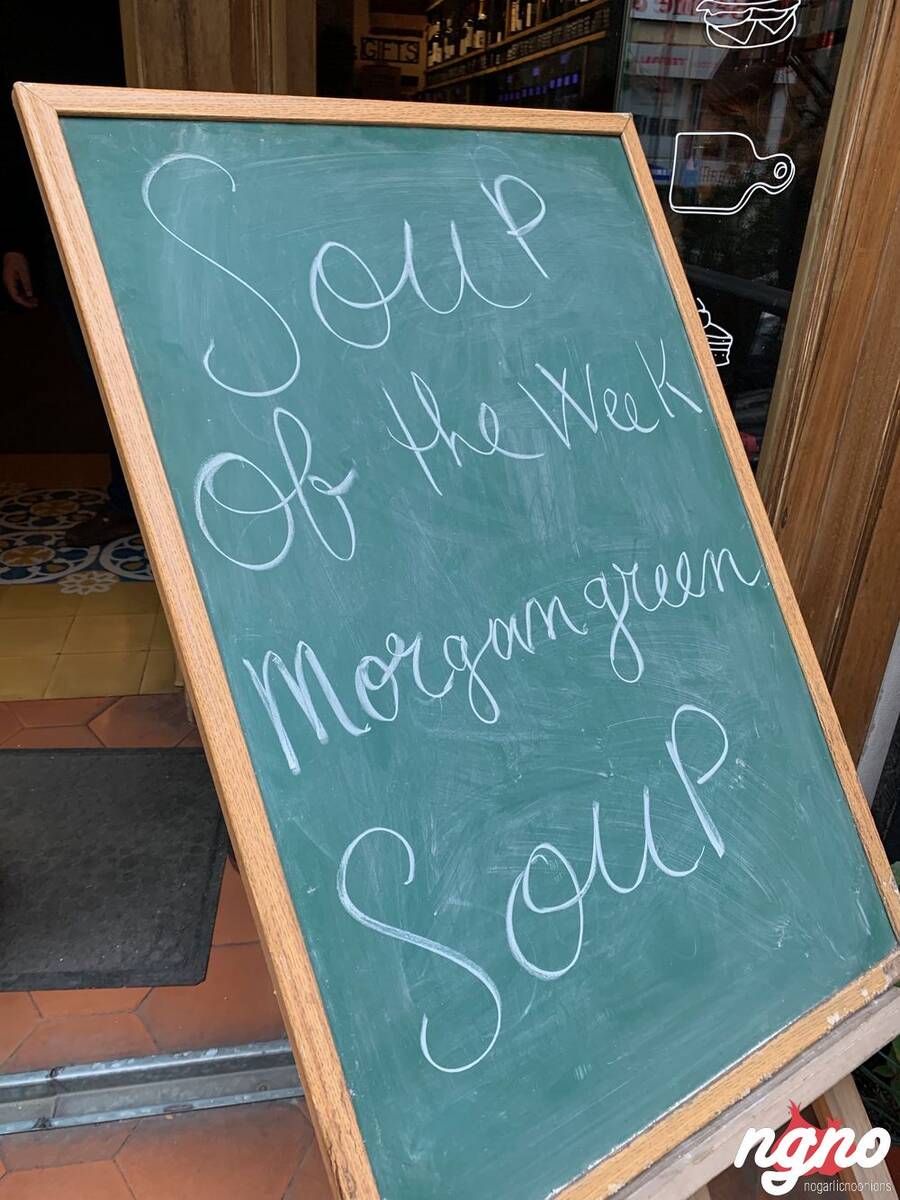 GIFTS
Soup
Of the Week
Morgan green
Soup
ngno
nogarlicnoonions